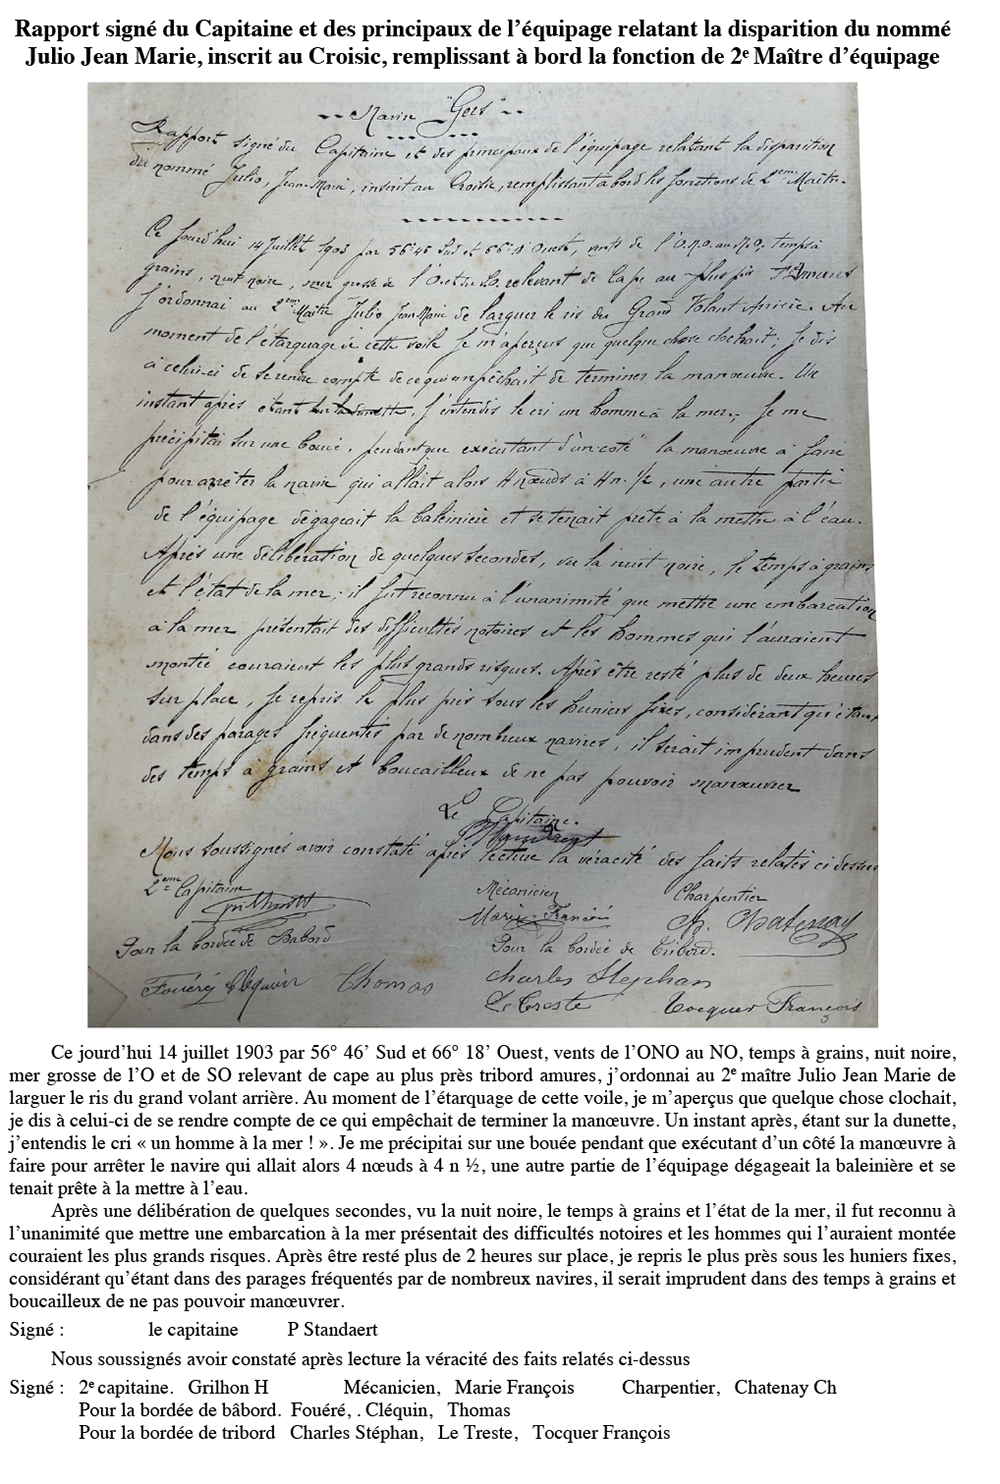 Rapport signé du Capitaine et des principaux de l’équipage relatant la disparition du nommé
Julio Jean Marie, inscrit au Croisic, remplissant à bord la fonction de 2e Maître d’équipage
Navire "Gers"
Rapport signé du Capitaine et des principaux de l'équipage relatant la disparition
du nommé Julio, Jean-Marie, inscrit au Croisic, remplissant à bord les fonctions de 2eme Maître.
Ce jourd'hui 14 Juillet 1903 par 56°46 Sud et 66°18 Ouest, vents de l'O.N.O. au N.O, temps à
grains, nuit noire, mer grosse de l'O et du S.O. relevant de Cape au plus près Td Amures
J'ordonnai au 2eme Maître Julio Jean Marie de larguer le ris du Grand Volant Arrière. Au
moment de l'étarquage de cette voile je m'aperçus que quelque chose clochait; je dis
à celui-ci de se rendre compte de ce qui empêchait de terminer la manœuvre. Un
instant après étant sur la dunette, j'entendis le cri un homme à la mer.; Je me
précipitai sur une bouée, pendant que exécutant d'un coté la manœuvre à faire
pour arrêter le navire qui allait alors 4 nœuds à 4 n. 1/2, une autre partie
de l'équipage dégageait la baleinière et se tenait prête à la mettre à l'eau.
Après une délibération de quelques secondes, vu la nuit noire, le temps à grains
et l'état de la mer; il fut reconnu à l'unanimité que mettre une embarcation
à la mer présentait des difficultés notoires et les hommes qui l'auraient
montée couraient les plus grands risques. Après être resté plus de deux heures
sur place, je repris le plus près sous les huniers fixes, considérant qu'étant
dans des parages fréquentés par de nombreux navires, il serait imprudent dans
des temps à grains et boucailleux de ne pas pouvoir manœuvrer
Le Capitaine.
Nous soussignés avoir constaté après lecture la véracité des faits relatés ci dessus
2eme Capitaine Mécanicien Charpentier
Marie François Ch. Chatenay
Pour la bordée de Babord Pour la bordée de Tribord.
Fouéré Cléquin Thomas Charles Stephan
Le Treste Tocquer François
Ce jourd’hui 14 juillet 1903 par 56° 46’ Sud et 66° 18’ Ouest, vents de l’ONO au NO, temps à grains, nuit noire,
mer grosse de l’O et de SO relevant de cape au plus près tribord amures, j’ordonnai au 2e maître Julio Jean Marie de
larguer le ris du grand volant arrière. Au moment de l’étarquage de cette voile, je m’aperçus que quelque chose clochait,
je dis à celui-ci de se rendre compte de ce qui empêchait de terminer la manœuvre. Un instant après, étant sur la dunette,
j’entendis le cri « un homme à la mer ! ». Je me précipitai sur une bouée pendant que exécutant d’un côté la manœuvre à
faire pour arrêter le navire qui allait alors 4 nœuds à 4 n ½, une autre partie de l’équipage dégageait la baleinière et se
tenait prête à la mettre à l’eau.
Après une délibération de quelques secondes, vu la nuit noire, le temps à grains et l’état de la mer, il fut reconnu à
l’unanimité que mettre une embarcation à la mer présentait des difficultés notoires et les hommes qui l’auraient montée
couraient les plus grands risques. Après être resté plus de 2 heures sur place, je repris le plus près sous les huniers fixes,
considérant qu’étant dans des parages fréquentés par de nombreux navires, il serait imprudent dans des temps à grains et
boucailleux de ne pas pouvoir manœuvrer.
Signé : le capitaine P Standaert
Nous soussignés avoir constaté après lecture la véracité des faits relatés ci-dessus
Signé : 2e capitaine. Grilhon H Mécanicien, Marie François Charpentier, Chatenay Ch
Pour la bordée de bâbord. Fouéré, . Cléquin, Thomas
Pour la bordée de tribord Charles Stéphan, Le Treste, Tocquer François